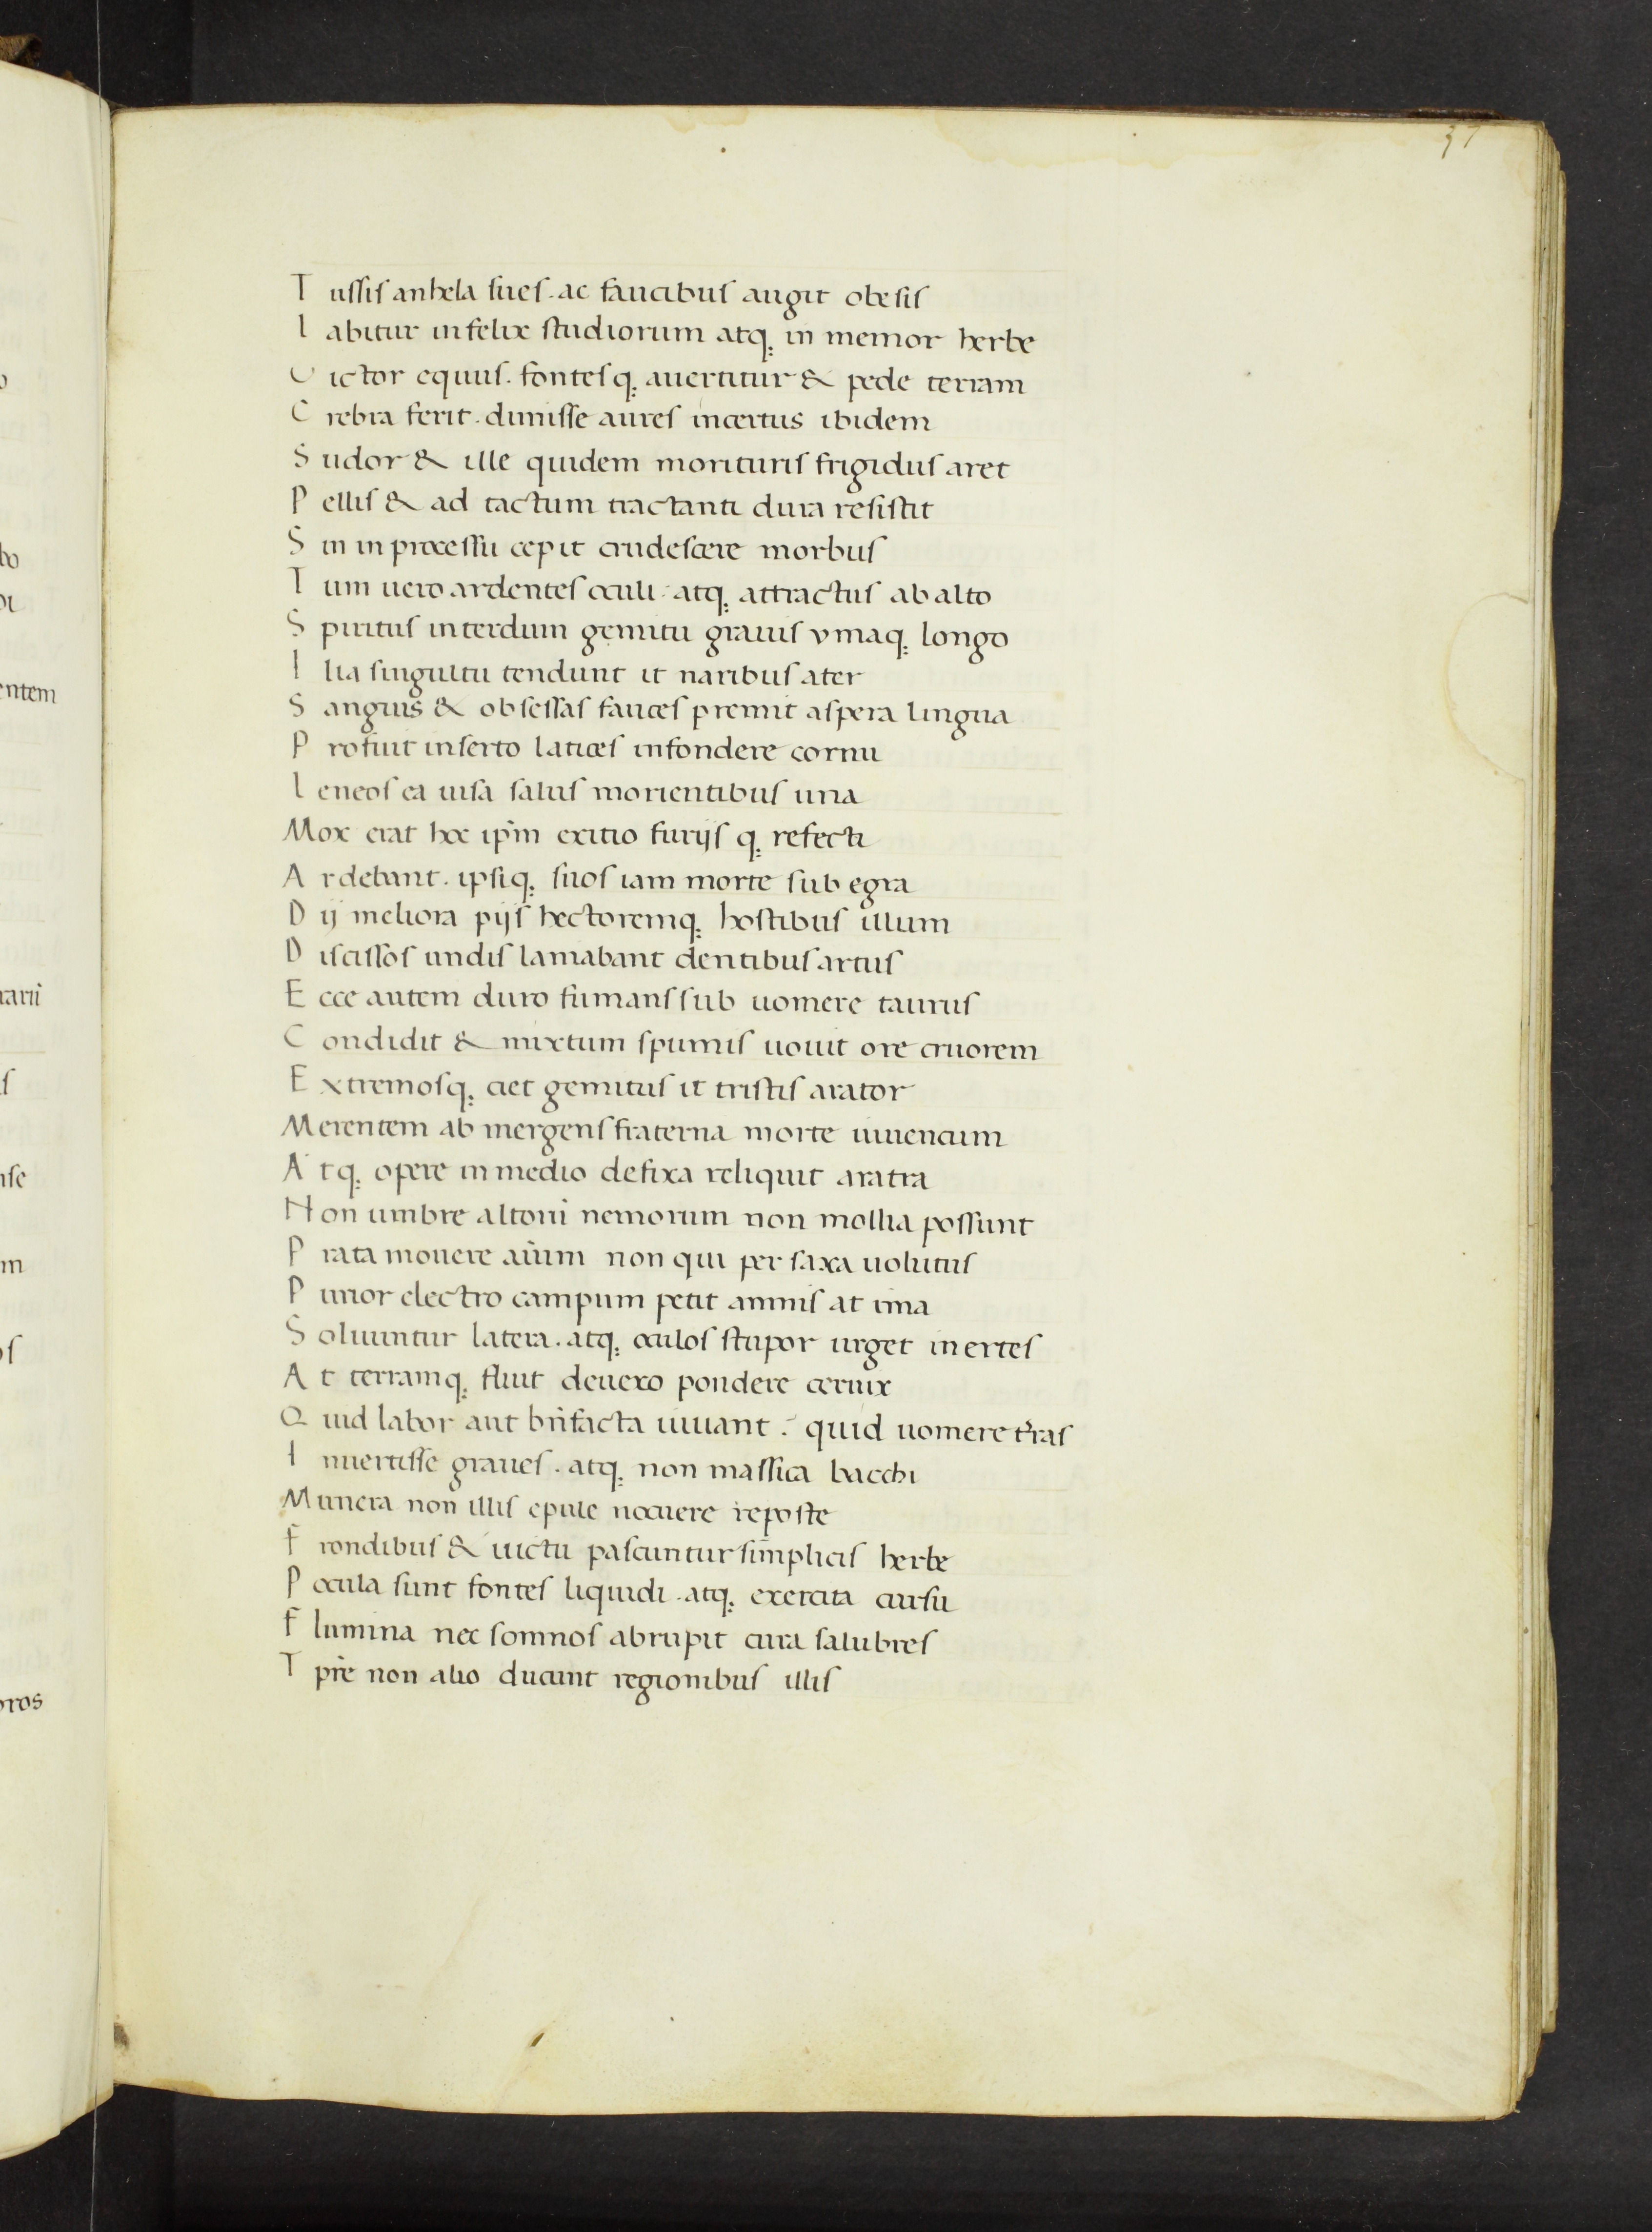 57
Tussis anhela sues. ac faucibus angit obesis
labitur infelix studiorum atq; in memor herbe
Uictor equus. fontesq; auertitur & pede terram
Crebra ferit. dimisse aures incertus ibidem
Sudor & ille quidem morituris frigidus aret
Pellis & ad tactum tractanti dura resistit
Sin in processu cepit crudescere morbus
Tum uero ardentes oculi. atq; attractus ab alto
Spiritus interdum gemitu grauis ymaq; longo
Ilia singultu tendunt it naribus ater
Sanguis & obsessas fauces premit aspera lingua
Profuit inserto latices infondere cornu
leneos ea uisa salus morientibus una
Mox erat hoc ipm̄ exitio furijs q; refecti
Ardebant. ipsiq; suos iam morte sub egra
Dij meliora pijs hectoremq; hostibus illum
Discissos undis laniabant dentibus artus
Ecce autem duro fumans sub uomere taurus
Condidit & mixtum spumis uouit ore cruorem
Extremosq; ciet gemitus it tristis arator
Merentem ab mergens fraterna morte iuuencum
Atq; opere in medio defixa reliquit aratra
Non umbre altorū nemorum non mollia possunt
Prata mouere aīum non qui per saxa uolutus
Purior electro campum petit amnis at ima
Soluuntur latera. atq; oculos stupor urget inertes
At terramq; fluit deuexo pondere ceruix
Quid labor aut bn̄facta iuuant. quid uomere t̄ras
Inuertisse graues. atq; non massica bacchi
Munera non illis epule nocuere reposte
Frondibus & uictu pascuntur simplicis herbe
Pocula sunt fontes liquidi. atq; exercita cursu
Flumina nec somnos abrupit cura salubres
Tpr̄e non alio ducunt regionibus illis